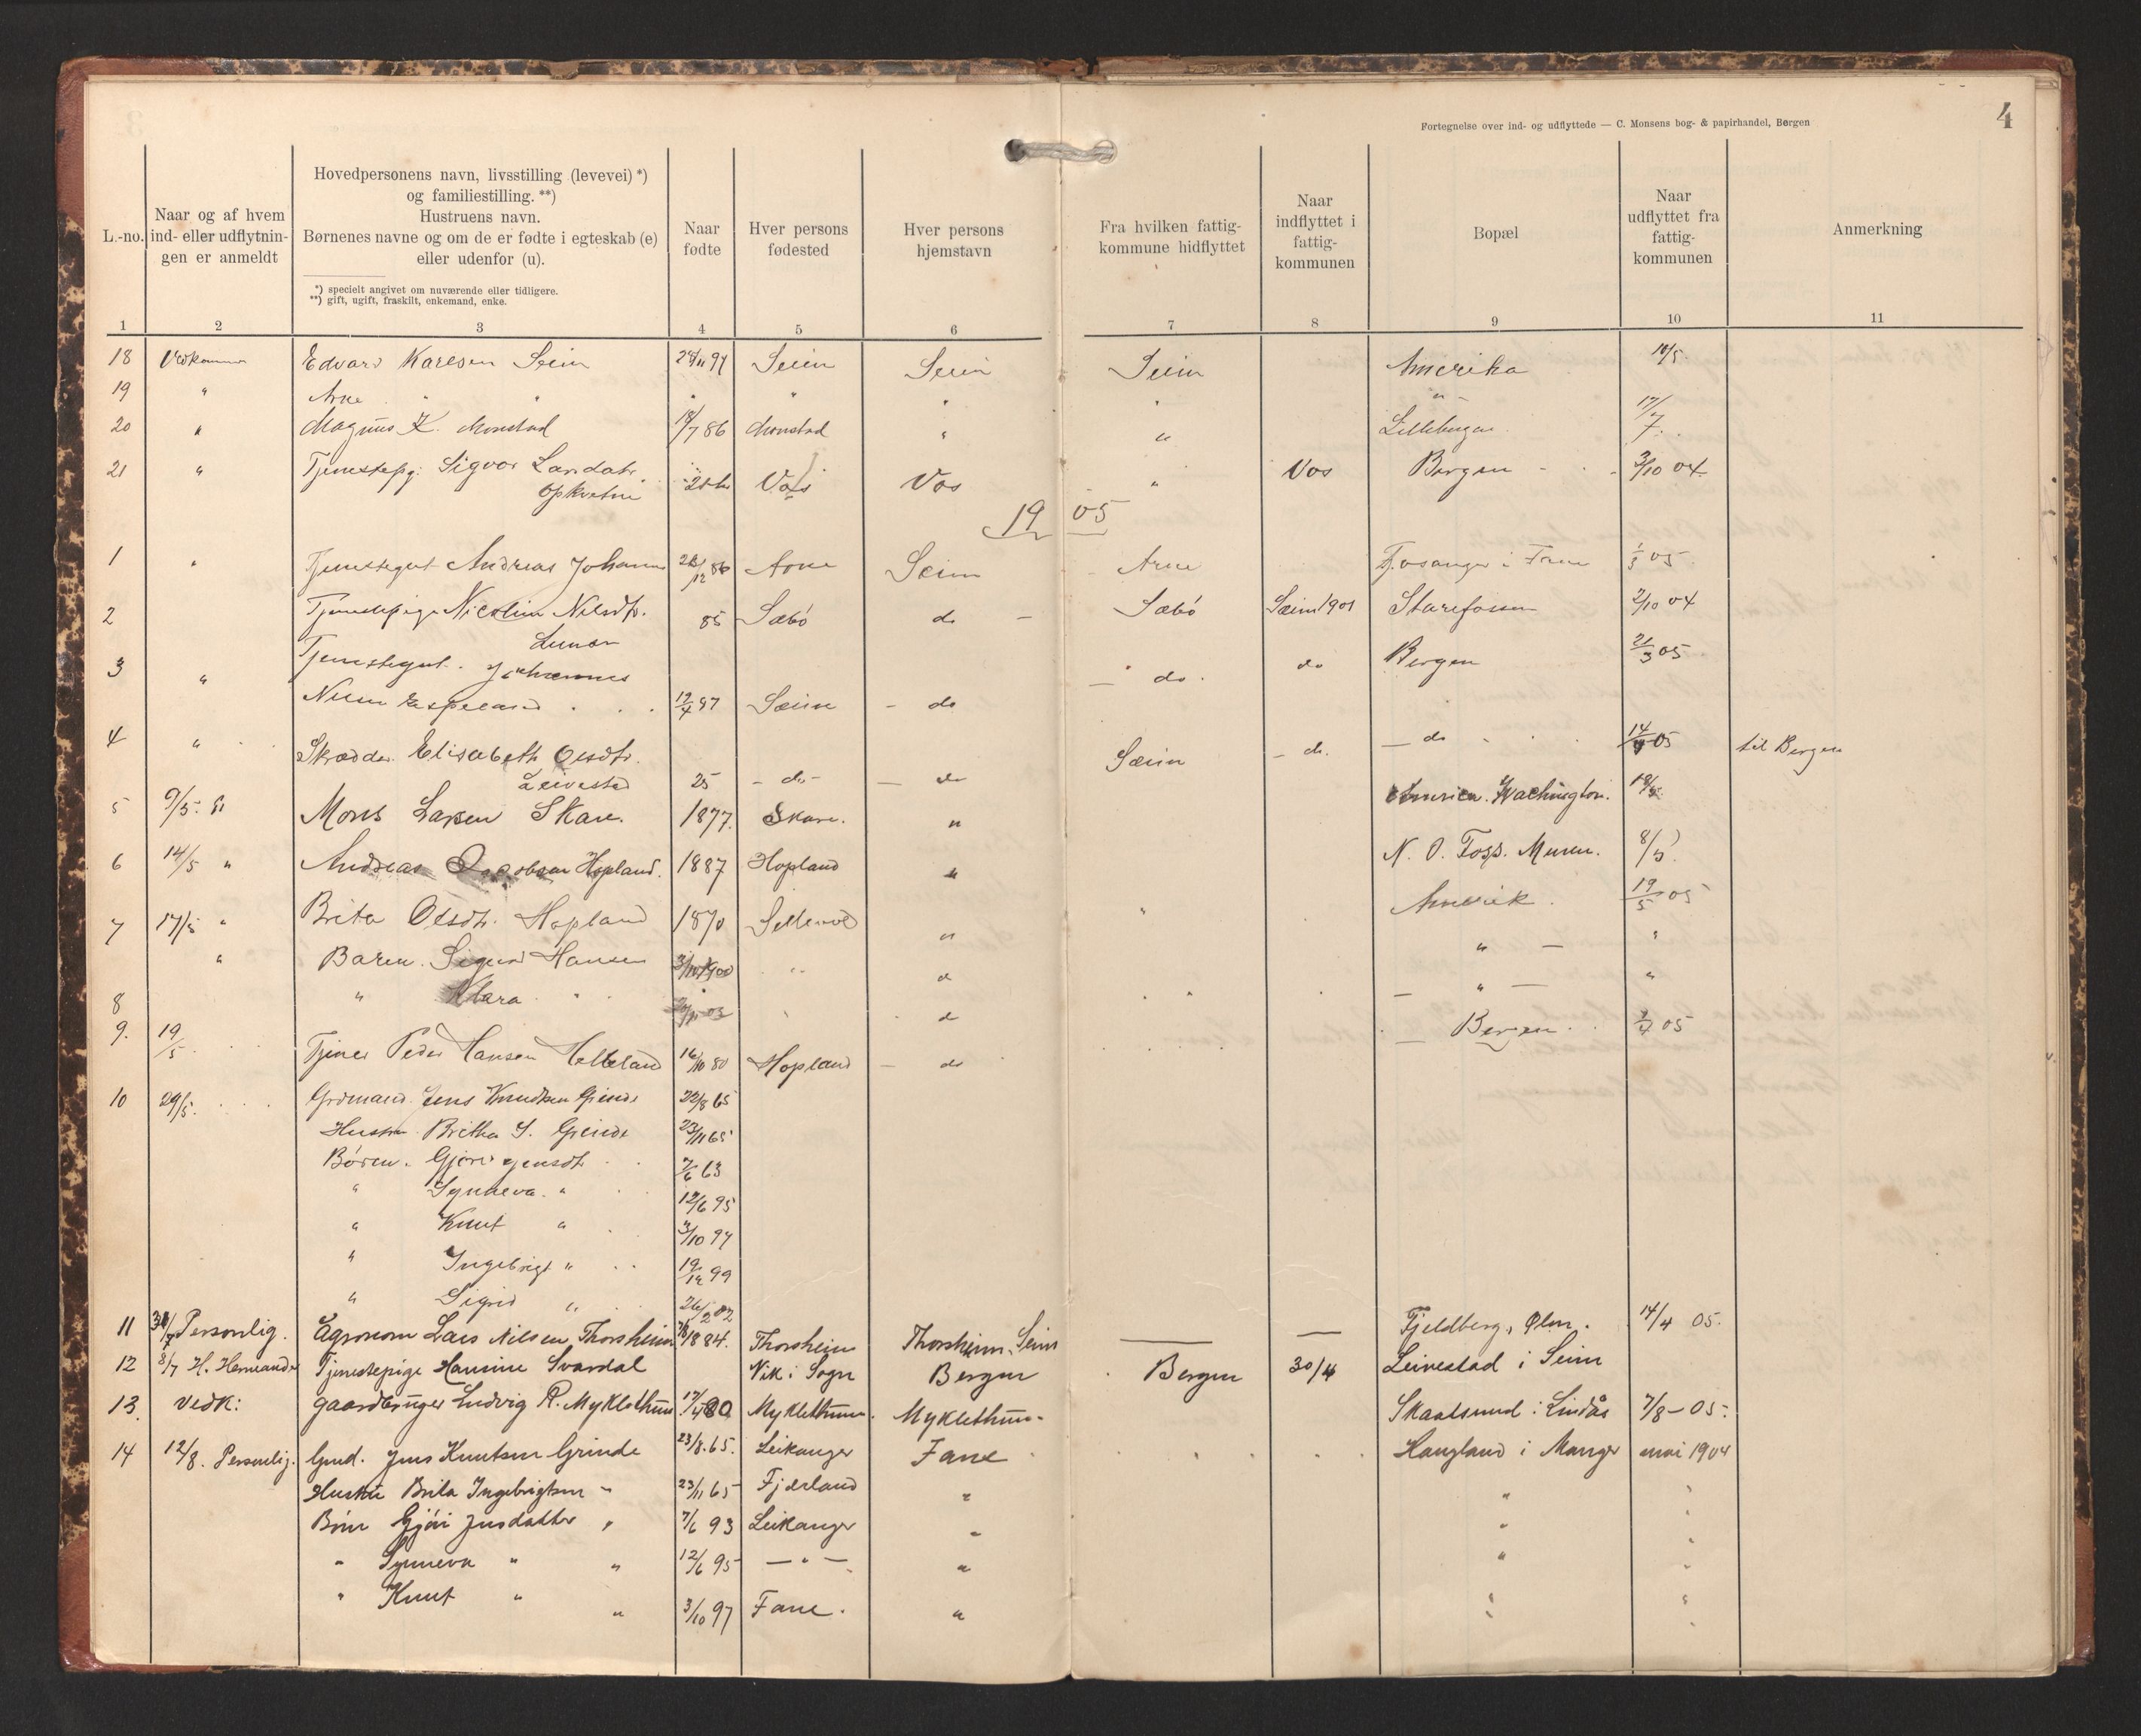 Fortegnelse over ind- og udflyttede — C. Monsens bog- & papirhandel, Bergen
4
L.-no.
Naar og af hvem ind- eller udflytningen er anmeldt
Hovedpersonens navn, livsstilling (levevei) *) og familiestilling. **)
Hustruens navn.
Børnenes navne og om de er fødte i egteskab (e) eller udenfor (u).
*) specielt angivet om nuværende eller tidligere.
**) gift, ugift, fraskilt, enkemand, enke.
Naar fødte
Hver persons fødested
Hver persons hjemstavn
Fra hvilken fattigkommune hidflyttet
Naar indflyttet i fattigkommunen
Bopæl
Naar udflyttet fra fattigkommunen
Anmerkning
1 2 3 4 5 6 7 8 9 10 11
18 Vedkommer Edvard Karlsen Seim Seim Seim Seim Amerika 10/5.
19 " Arne " " " " " "
20 " Magnus K. Monstad 18/7 86 Monstad " " 17/7.
21 " Tjenestepg. Sigvor Larsdatr. Vos Vos " Vos Bergen 3/10 04.
Opkvitne
1905
1 " Tjenestegut Andreas Johann 86 Arne Seim Arne Fjøsanger i Fane 05
2 Tjenestepige Nicoline Nilsdtr. 85 Sæbö do Sæbö Seim 1901 Starefossen 2/10 04
3 " Tjenestegut. Johannes do. do Bergen 21/3 05
Nilsen Espeland 19/4 87 Sæim do
4 " Skrædder Elisabeth Olsdtr. Sæim do. do 14/ 05 til Bergen
Leivestad 25 do do
5 9/5. Mons Larsen Skare. 1877. Skare. " America. Wachington. 18/5
6 14/5 " Andreas Jacobsen Hopland. 1887 Hopland " N. O. Foss. Muren. 8/5.
7 17/5 " Brita Olsdtr. Hopland 1870 " " Amerik. 19/5 05
" Baren. Sigurd Hansen 3/10 1900 " " " "
8 " Klara " 03 " " " "
9. 19/5 Tjener Peder Hansen Helleland 16/10 80 Hopland do Bergen. /4 05
10 29/5. Grdmand. Jens Knudsen Grinde 22/8 65
Hustru Britha J. Grinde 23/11 65
Børen. Gjøri Jensdt. 7/6 63
" Synneva " 12/6 95
" Knut " 3/10 97
" Ingebrigt " 19/12 99
" Sigrid " 26/2 02
11 Personlig. Agronom Lars Nilsen Thorsheim 1884. Thorsheim Thorsheim, Seim Fjeldberg, Ølen. 14/4 05.
12 8/7 Tjenestepige Hansine Svardal Vik i Sogn Bergen Bergen 30/4 Leivestad i Seim
13. Vedk: Gaardbruger Ludvig R. Myklethun 17/4 80 Myklethun. Myklethun. Skaalsund i Lindås 7/8 – 05.
14 12/8. Personlig. Grmd. Jens Knutsen Grinde 23/8. 65. Leikanger Fane Haugland i Manger mai 1904
Hustru Brita Ingebrigtsen " 23/11 65 Fjærland " " "
Börn Gjöri Jensdatter " 7/6 93 Leikanger " " "
" Synneva " " 12/6 95 — " — " " "
" Knut " " 3/10 97 Fane. " " "